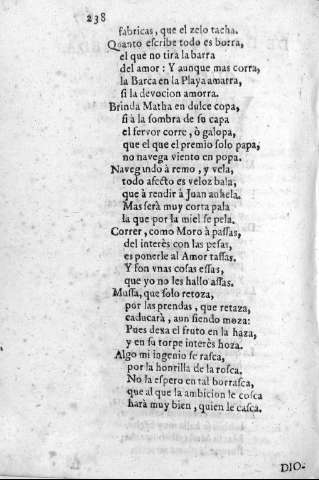 238
fabricas, que el zelo tacha.
Quanto escribe todo es borra,
el que no tira la barra
del amor: Y aunque mas corra,
la Barca en la Playa amarra,
si la devocion amorra.
Brinda Matha en dulce copa,
si à la sombra de su capa
el fervor corre, ò galopa,
que el que el premio solo papa,
no navega viento en popa.
Navegando à remo, y vela,
todo afecto es veloz bala,
que à rendir à Juan anhela.
Mas serà muy corta pala
la que por la miel se pela.
Correr, como Moro à passas,
del interès con las pesas,
es ponerle al Amor tassas.
Y son unas cosas essas,
que yo no les hallo assas.
Mussa, que solo retoza,
por las prendas, que retaza,
caducarà, aun siendo moza:
Pues dexa el fruto en la haza,
y en su torpe interès hoza.
Algo mi ingenio se rasca,
por la honrilla de la rosca.
No la espero en tal borrasca,
que al que la ambicion le cosca
harà muy bien, quien le casca.
DIO-